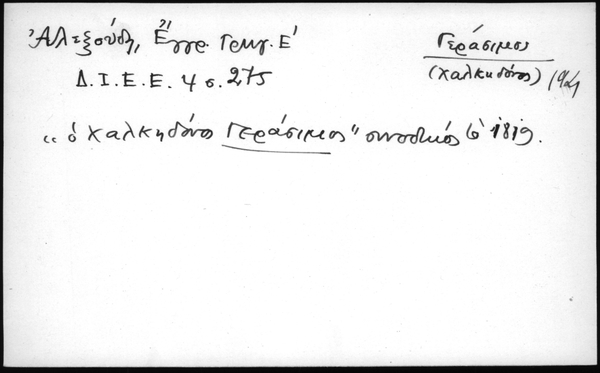 Ἀλεξούδη, Ἔγγρ. Γρηγ. Ε'
Δ.Ι.Ε.Ε. 4 σ. 275
Γεράσιμος
(Χαλκηδόνος)
"ὁ Χαλκηδόνος Γεράσιμος" συνοδικός 1819.